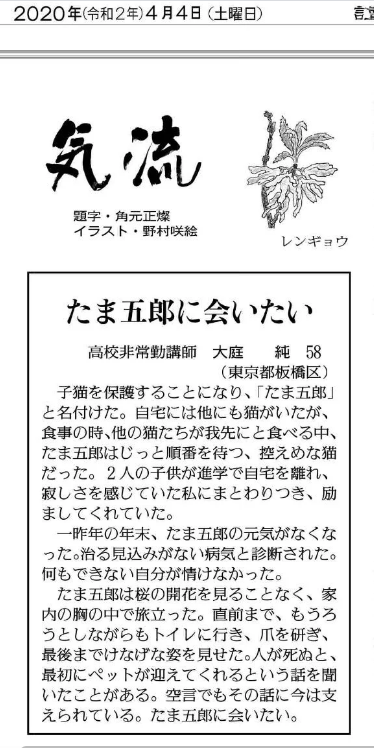 2020年(令和2年)4月4日(土曜日)
気流
題字・角元正燦
イラスト・野村咲絵
レンギョウ
たま五郎に会いたい
高校非常勤講師 大庭 純 58
(東京都板橋区)
子猫を保護することになり、「たま五郎」
と名付けた。自宅には他にも猫がいたが、
食事の時、他の猫たちが我先にと食べる中、
たま五郎はじっと順番を待つ、控えめな猫
だった。2人の子供が進学で自宅を離れ、
寂しさを感じていた私にまとわりつき、励
ましてくれていた。
一昨年の年末、たま五郎の元気がなくな
った。治る見込みがない病気と診断された。
何もできない自分が情けなかった。
たま五郎は桜の開花を見ることなく、家
内の胸の中で旅立った。直前まで、もうろ
うとしながらもトイレに行き、爪を研ぎ、
最後までけなげな姿を見せた。人が死ぬと、
最初にペットが迎えてくれるという話を聞
いたことがある。空言でもその話に今は支
えられている。たま五郎に会いたい。